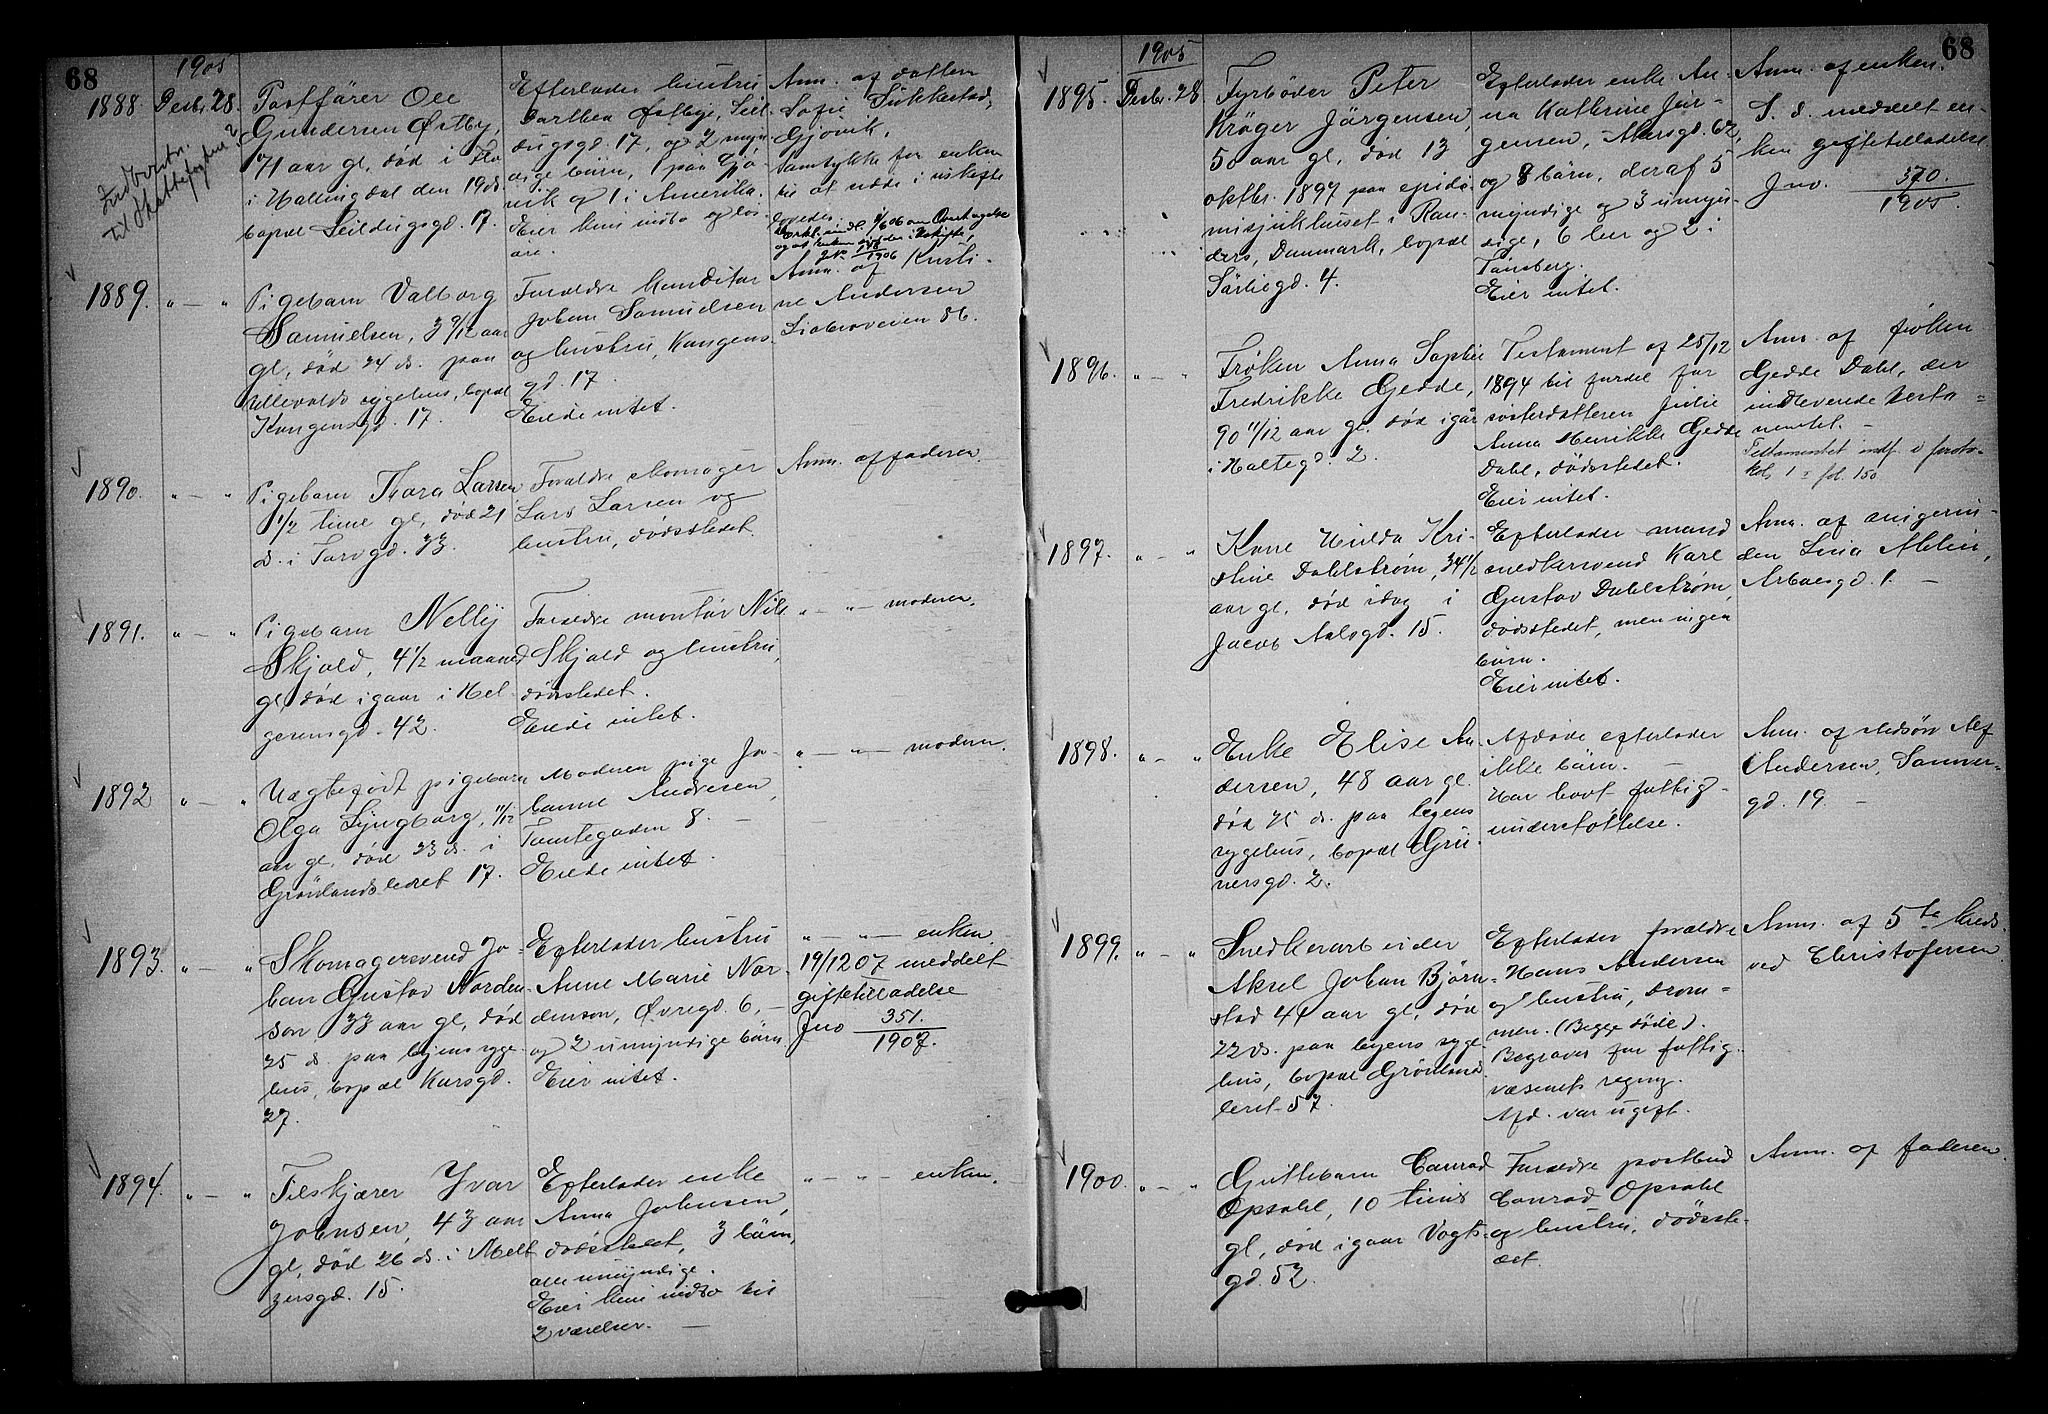 68
1905
1888. Desbr. 28.
Indberetn.
til Skattefogden
Postfører Ole
Gundersen Østby,
71 aar gl., død i Flo
i Hallingdal den 19 ds.
bopæl Seildugsgd. 17.
Efterlader hustru
Dorthea Østbye, Seil-
dugsgd. 17, og 2 myn-
dige børn, 1 paa Gjø-
vik og 1 i Amerika.
Eier kun indbo og løs-
øre.
Anm. af datten
Sofie
Gjøvik.
Samtykke for enken
til at sidde i uskifte
1906
1889. " — "
Pigebarn Valborg
Samuelsen, 3 9/12 aar
gl., død 24 ds. paa
Ullevolds sygehus, bopæl
Kongensgd. 17.
Forældre konditor
Johan Samuelsen
og hustru, Kongens-
gd. 17.
Eiede intet.
Anm. af Kristi-
ne Andersen
Ljabroveien 86.
1890. " — "
Pigebarn Thora Larsen
1/2 time gl., død 21
ds. i Torvgd. 33.
Forældre skomager
Lars Larsen og
hustru, dødsstedet.
Anm. af faderen.
1891. " — "
Pigebarn Nellij
Skjold, 4 1/2 maaned
gl., død igaar i Hel-
gesensgd. 42.
Forældre montør Nils
Skjold og hustru,
dødsstedet.
Eiede intet.
" — " — moderen.
1892 " — "
Uægtefødt pigebarn
Olga Ljungborg, 11/12
aar gl., død 23 ds. i
Grønlandsleret 17.
Moderen pige Jo-
hanne Andresen,
Tomtegaden 8. —
Eiede intet.
" — " — moderen.
1893. " — "
Skomagersvend Jo-
han Gustav Norden-
son 33 aar gl., død
25 ds. paa byens syge-
hus, bopæl Karsgd.
27.
Efterlader hustru
Anne Marie Nor-
denson, Øvregd. 6, —
og 2 umyndige børn.
Eier intet.
" — " — enken.
19/12 07 meddelt
giftetilladelse
Jno 351.
1907.
1894. " — "
Filskjærer Yvar
Johnsen, 43 aar
gl., død 26 ds. i Melt
zersgd. 15.
Efterlader enke
Anna Johnsen,
dødsstedet, 3 børn,
alle umyndige.
Eier kun indbo til
2 værelser. —
" — " — enken.
68
1905
1895. Desbr. 28
Fyrbøder Peter
Krøger Jørgensen,
50 aar gl., død 13
oktbr. 1897 paa epide-
misjukhuset i Ran-
ders, Danmark, bopæl
Sørliegd. 4.
Efterlader enke An-
na Kathrine Jør-
gensen, Akersgd. 62,
og 8 børn, deraf 5
myndige og 3 umyn-
dige, 6 her og 2 i
Tønsberg.
Eier intet.
Anm. af enken.
S. d. meddelt en-
ken giftetilladelse
Jno. 370.
1905.
1896. " — "
Frøken Anna Sophie
Fredrikke Gedde,
90 11/12 aar gl. død igår
i Holtegd. 2.
Testament af 28/12
1894 til fordel for
søsterdatteren Julie
Anna Henrikke Gedde
Dahl, dødsstedet.
Eier intet.
Anm. af frøken
Gedde Dahl, der
indleverede testa-
mentet. —
Testamentet indf. i proto-
kol 1 s fol. 150
1897. " — "
Kone Hulda Kri-
stine Dahlstrøm, 34 1/2
aar gl., død idag i
Jacob Aalsgd. 15.
Efterlader mand
snedkersvend Karl
Gustav Dahlstrøm,
dødsstedet, men ingen
børn.
Eier intet.
Anm. af svigerin-
den Lina Ahlin,
Arboesgd. 1. —
1898. " — "
Enke Elise An-
dersen, 48 aar gl.
død 25 ds. paa byens
sygehus, bopæl Grü-
nersgd. 2.
Afdøde efterlader
ikke børn. —
Har havt fattig-
understøttelse.
Anm. af stedsøn Alf
Andersen, Sanner-
gd. 19. —
1899. " — "
Snedkerarbeider
Aksel Johan Bjørn-
stad 41 aar gl., død
22 ds. paa byens syge-
hus, bopæl Grønlands
leret 57.
Efterlader forældre
Hans Andersen
og hustru, Dram-
men. (Begge døde).
Begraves for fattig-
væsenets regning.
Afd. var ugift.
Anm. af 5te kreds
ved Christofersen.
1900. " — "
Guttebarn Conrad
Opsahl, 10 timer
gl., død igaar Vogts-
gd. 52.
Forældre postbud
Conrad Opsahl
og hustru, dødsste-
det.
Anm. af faderen.